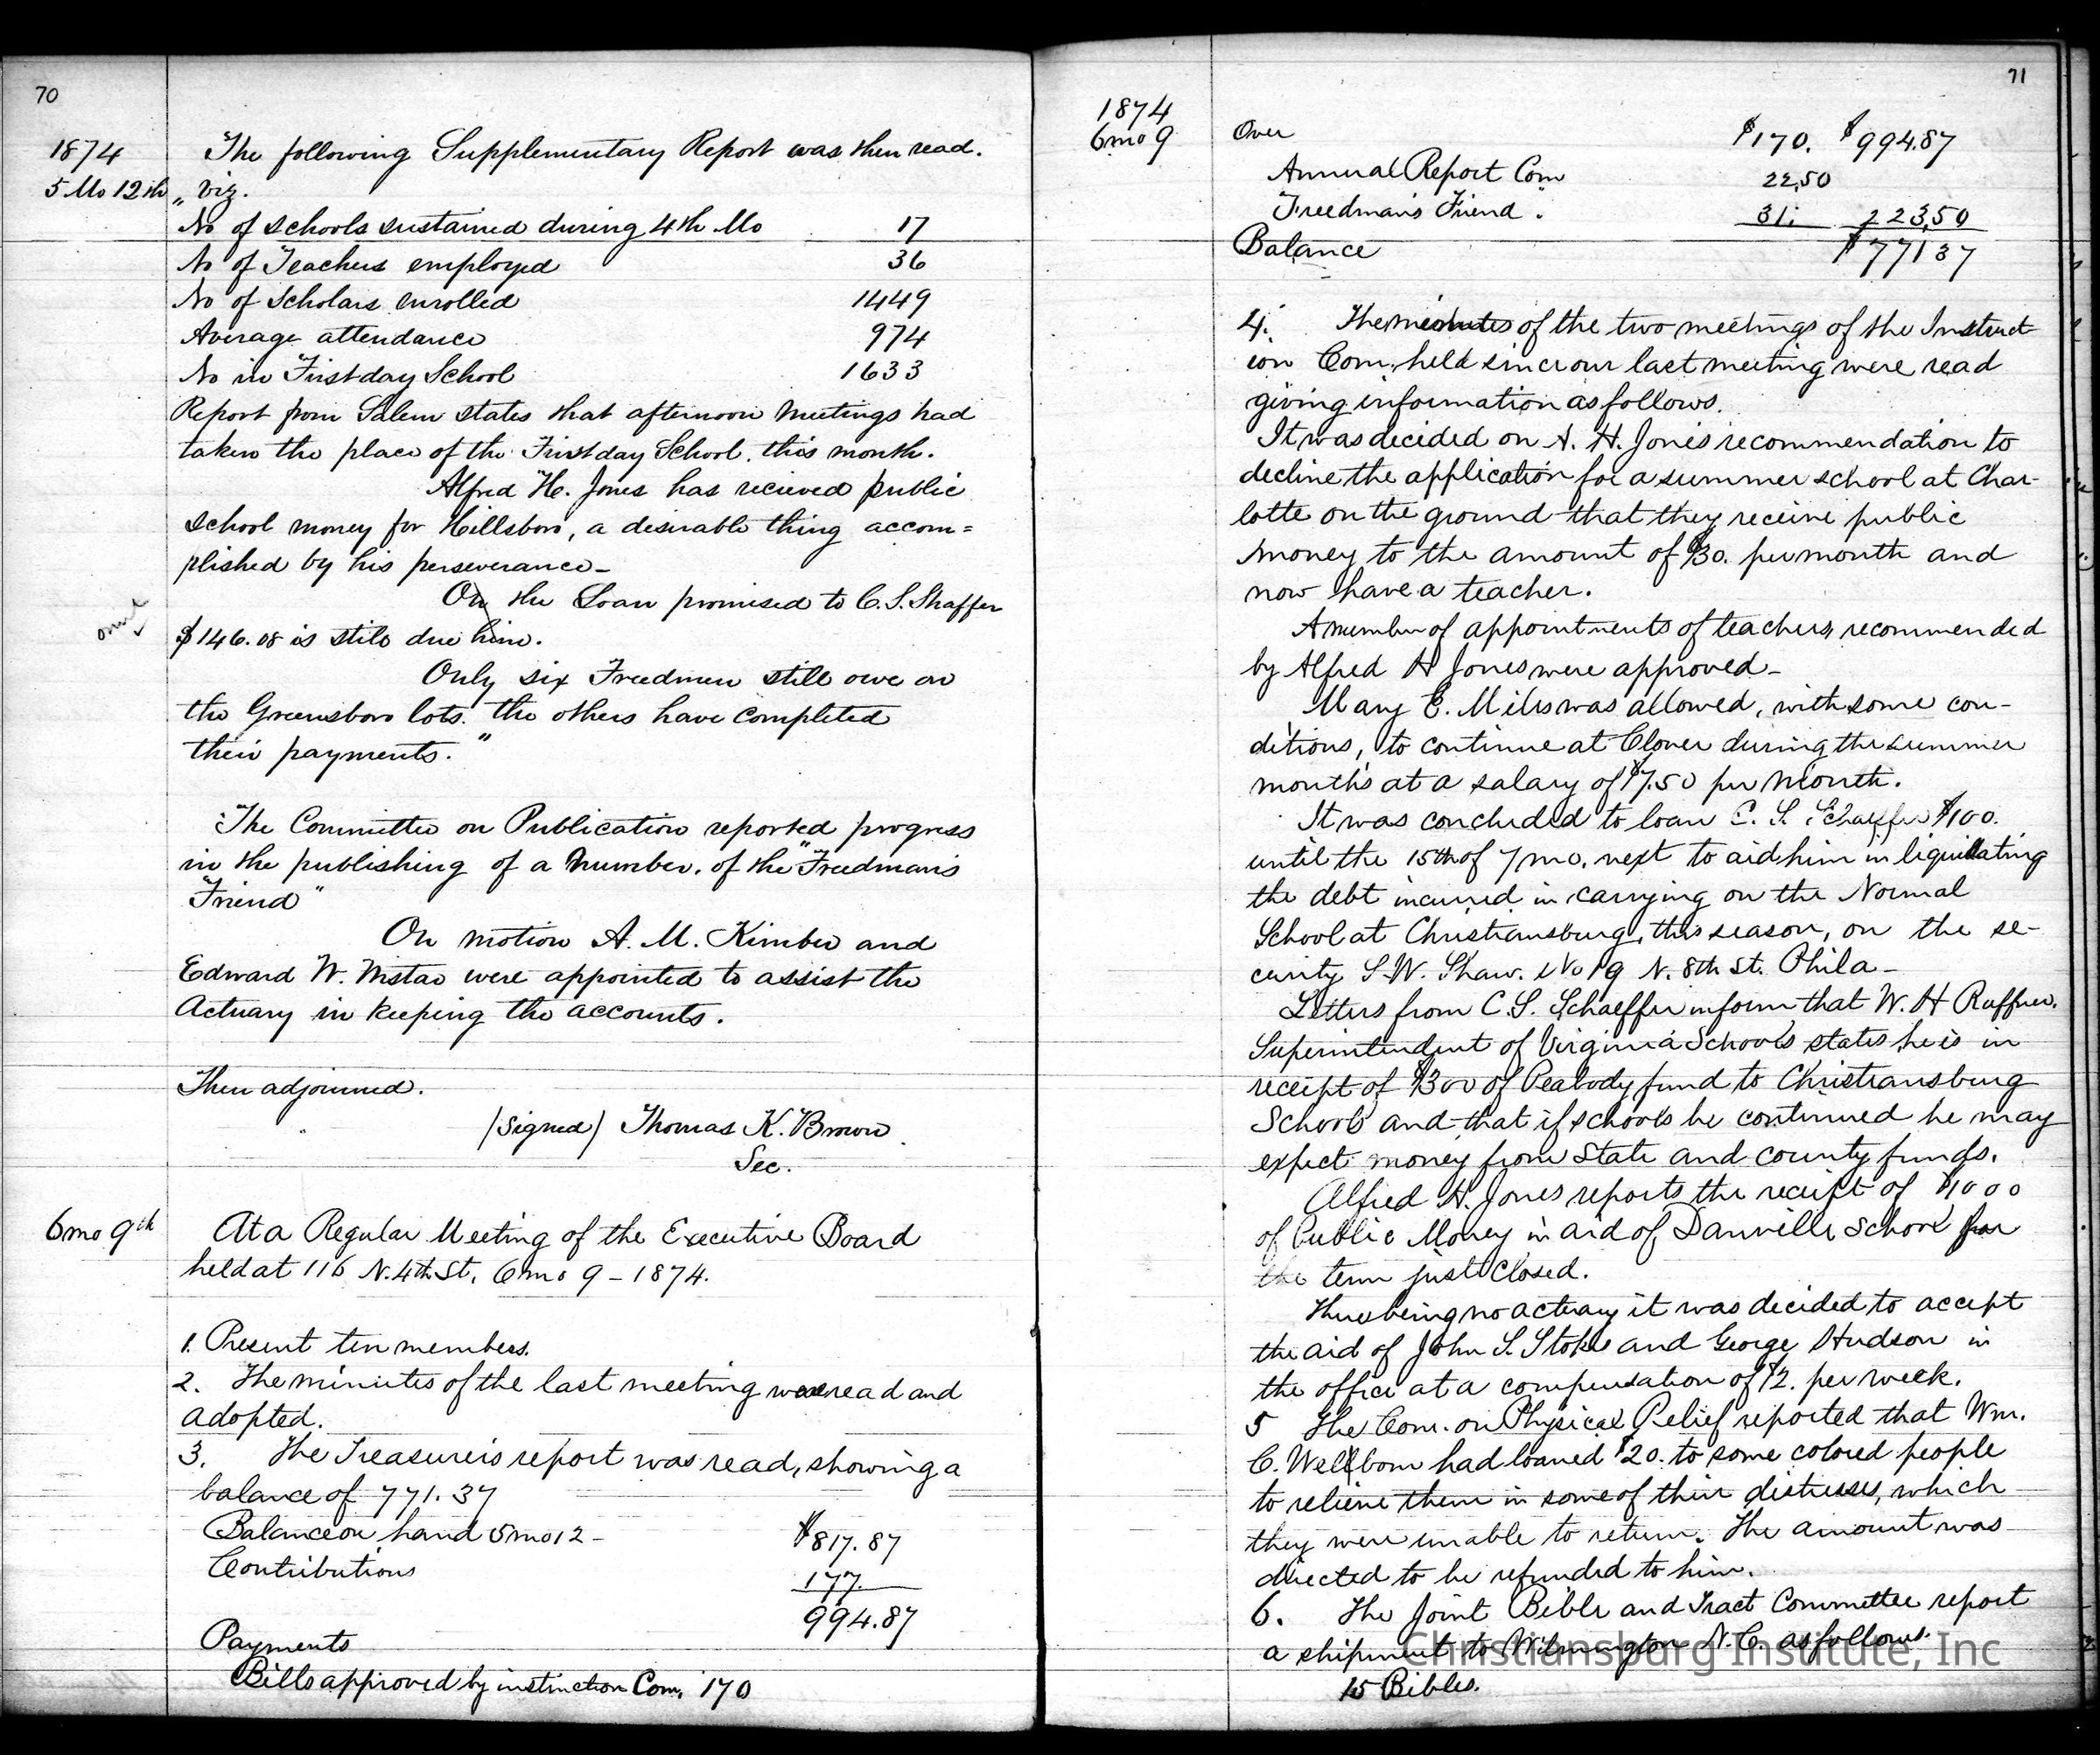 70
1874
5 Mo 12th
"The following Supplementary Report was then read.
„ viz.
No of schools sustained during 4th Mo 17
No of Teachers employed 36
No of scholars enrolled 1449
Average attendance 974
No in Firstday School 1633
Report from Salem states that afternoon meetings had
taken the place of the Firstday School this month.
Alfred H. Jones has recieved public
school money for Hillsboro, a desirable thing accom=
plished by his perseverance_
On the Loan promised to C. S. Shaffer
omit
$146.08 is still due him.
Only six Freedmen still owe on
the Greensboro lots. the others have completed
their payments."
The Committee on Publication reported progress
in the publishing of a number. of the "Freedman's
Friend"
On motion A. M. Kimber and
Edward W. Wistar were appointed to assist the
Actuary in keeping the accounts.
Then adjourned.
(Signed) Thomas K. Brown
Sec.
6 mo 9th
At a Regular Meeting of the Executive Board
held at 116 N. 4th St, 6 mo 9 - 1874.
1. Present ten members.
2. The minutes of the last meeting were read and
adopted.
3. The Treasurer's report was read, showing a
balance of 771.37
Balance on hand 5 mo 12 - $817.87
Contributions 177.
994.87
Payments
Bills approved by instruction Com. 170
71
1874
6 mo 9
Over $170. $994.87
Annual Report Com 22,50
Freedman's Friend . 31. 223,50
Balance $771 37
4. The minutes of the two meetings of the Instruct
ion Com. held since our last meeting were read
giving information as follows.
It was decided on A. H. Jones recommendation to
decline the application for a summer school at Char-
lotte on the ground that they receive public
money to the amount of $30. per month and
now have a teacher.
A number of appointments of teachers recommended
by Alfred H Jones were approved_
Mary E. Miles was allowed, with some con-
ditions, to continue at Clover during the summer
months at a salary of $7.50 per month.
It was concluded to loan C. S. Schaeffer $100.
until the 15th of 7 mo. next to aid him in liquidating
the debt incurred in carrying on the Normal
School at Christiansburg, this season, on the se-
curity S. W. Shaw. No 19 N. 8th St. Phila_
Letters from C. S. Schaeffer inform that W. H Ruffner.
Superintendent of Virginia Schools states he is in
receipt of $300 of Peabody fund to Christiansburg
School and that if schools be continued he may
expect money from State and county funds.
Alfred H. Jones reports the receipt of $1000
of Public Money in aid of Danville School for
the term just closed.
There being no actuary it was decided to accept
the aid of John S. Stokes and George Hudson in
the office at a compensation of $12. per week.
5 The Com. on Physical Relief reported that Wm.
C. Wellborn had loaned $20. to some colored people
to relieve them in some of their distresses, which
they were unable to return. The amount was
directed to be refunded to him.
6. The Joint Bible and Tract Committee report
a shipment to Wilmington N. C. as follows
15 Bibles.
Christiansburg Institute, Inc